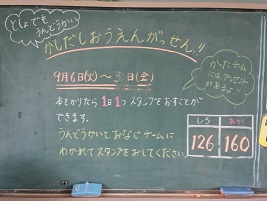 としょでも
うんどうかい
かしだしおうえんがっせん!!
かったチーム
にはプレゼント
があるよ!!
9月6日(火)～30日(金)
本をかりたら1日1つスタンプをおすことが
できます。
うんどうかいでおなじチームに
わかれてスタンプをおしてください
しろ あか
126 160